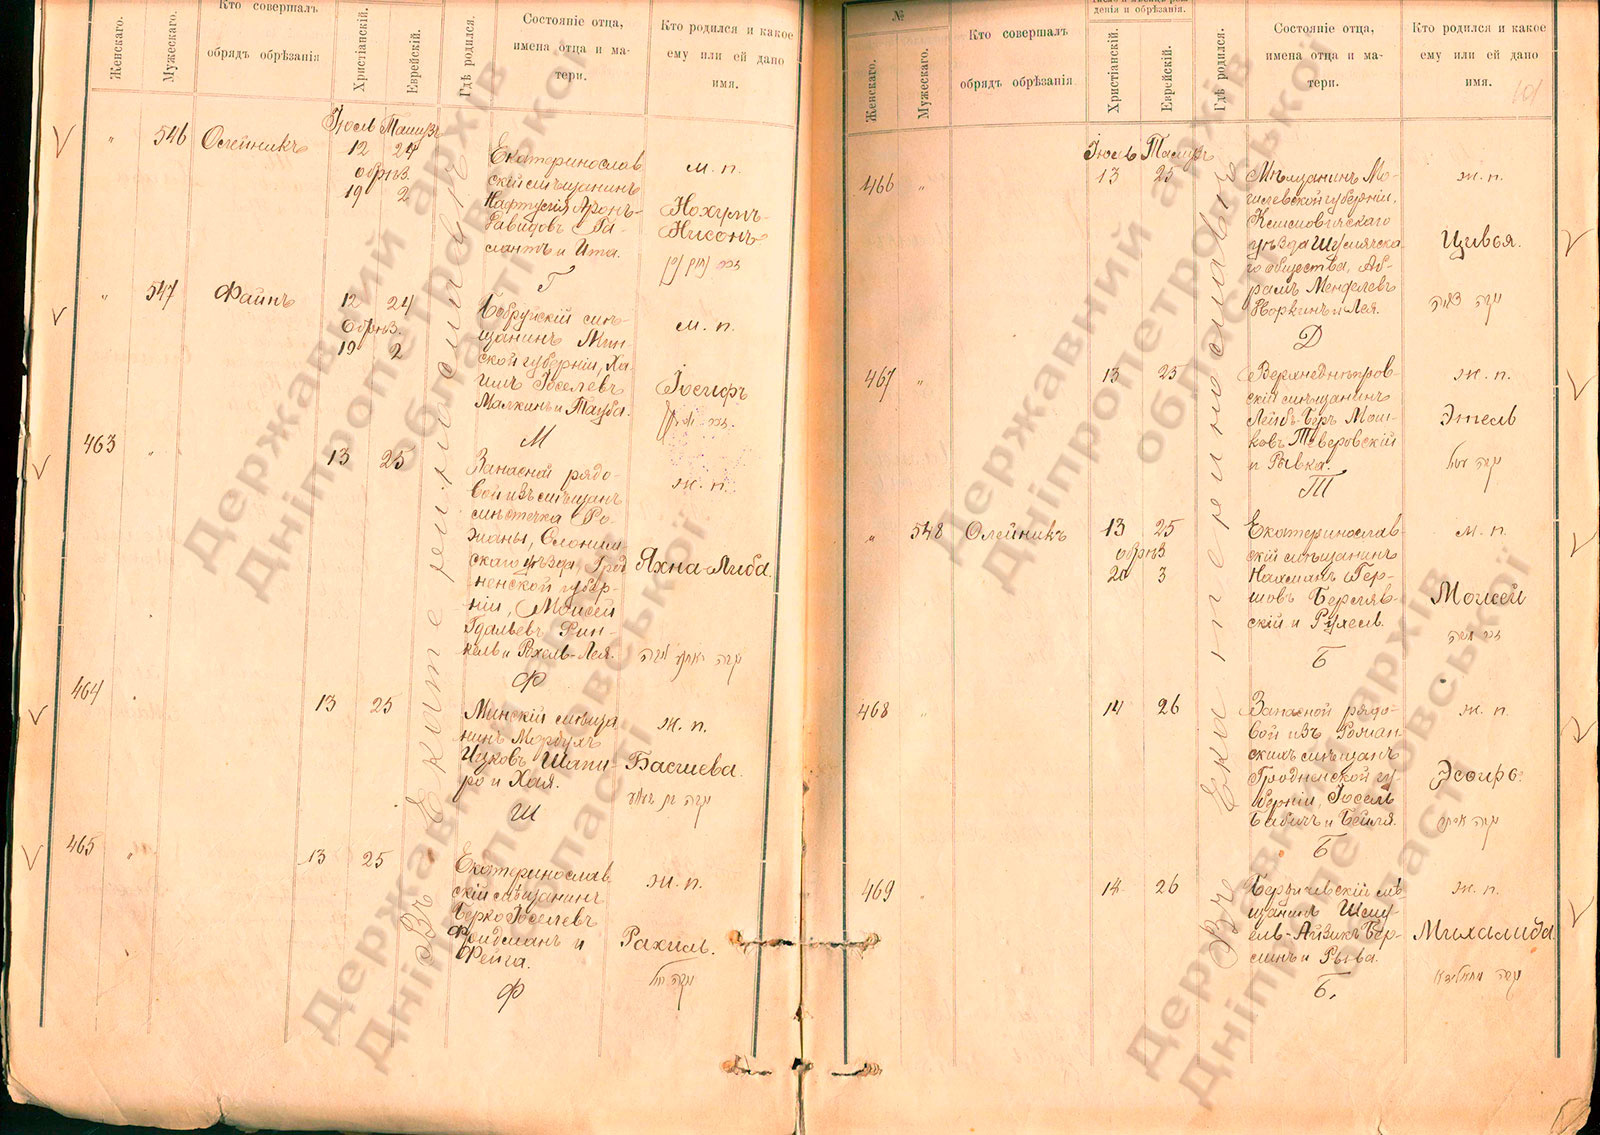 Женскаго.
Мужескаго.
Кто совершалъ
обрядъ обрѣзанія
Христіанскій.
Еврейскій.
Гдѣ родился.
Состояніе отца,
имена отца и ма-
тери.
Кто родился и какое
ему или ей дано
имя.
546
Олейникъ
Іюль Тамузъ
12 24
обрѣз.
19 2
Екатеринослав
скій мѣщанинъ
Нафтулій Аронъ-
Давидовъ Га-
лантъ и Ита.
Г
м. п.
Нохумъ-
Нисонъ
547
Файнъ
12 24
Обрѣз.
19 2
Бобруйскій мѣ-
щанинъ Мин-
ской губерніи, Ха-
имъ Іоселевъ
Малкинъ и Тауба.
М
м. п.
Іосифъ
463
13 25
Запасной рядо-
вой изъ мѣщанъ
мѣстечка Ро-
жаны, Слоним-
скаго уѣзда, Грод
ненской губер-
ніи, Моисей
Гдальевъ Фин-
кель и Рохель-Лея.
Ф
ж. п.
Яхна-Либа.
464
13 25
Минскій мѣща
нинъ Мордухъ
Ицковъ Шапи-
ро и Хая.
Ш
ж. п.
Басшева.
465
13 25
Екатеринослав
скій мѣщанинъ
Берко Іоселевъ
Фридманъ и
Фейга.
Ф
ж. п.
Рахиль.
Въ Екатеринославѣ
№
Женскаго.
Мужескаго.
Кто совершалъ
обрядъ обрѣзанія
денія и обрѣзанія.
Христіанскій.
Еврейскій.
Гдѣ родился.
Состояніе отца,
имена отца и ма-
тери.
Кто родился и какое
ему или ей дано
имя.
101
466
Іюль Тамузъ
13 25
Мѣщанинъ Мо-
гилевской губерніи,
Климовичскаго
уѣзда Шумячска
го общества, Аб-
рамъ Менделевъ
Норкинъ и Лея.
Д
ж. п.
Цивья.
467
13 25
Верхнеднѣпров-
скій мѣщанинъ
Лейбъ-Беръ Мош-
ковъ Теверовскій
и Рывка.
Т
ж. п.
Этель
548
Олейникъ
13 25
обрѣз
20 3
Екатеринослав-
скій мѣщанинъ
Нахманъ Гер-
шовъ Берсляв-
скій и Рухель.
Б
м. п.
Моисей
468
14 26
Запасной рядо-
вой изъ Рожан-
скихъ мѣщанъ
Гродненской гу-
берніи, Іосель
Бабичъ и Бейля.
Б
ж. п.
Эсѳирь.
469
14 26
Бердичевскій мѣ
щанинъ Шму-
ель-Айзикъ Бер-
линъ и Рыва.
Б.
ж. п.
Михалида.
Въ Екатеринославѣ
Державний архів
Дніпропетровської
області